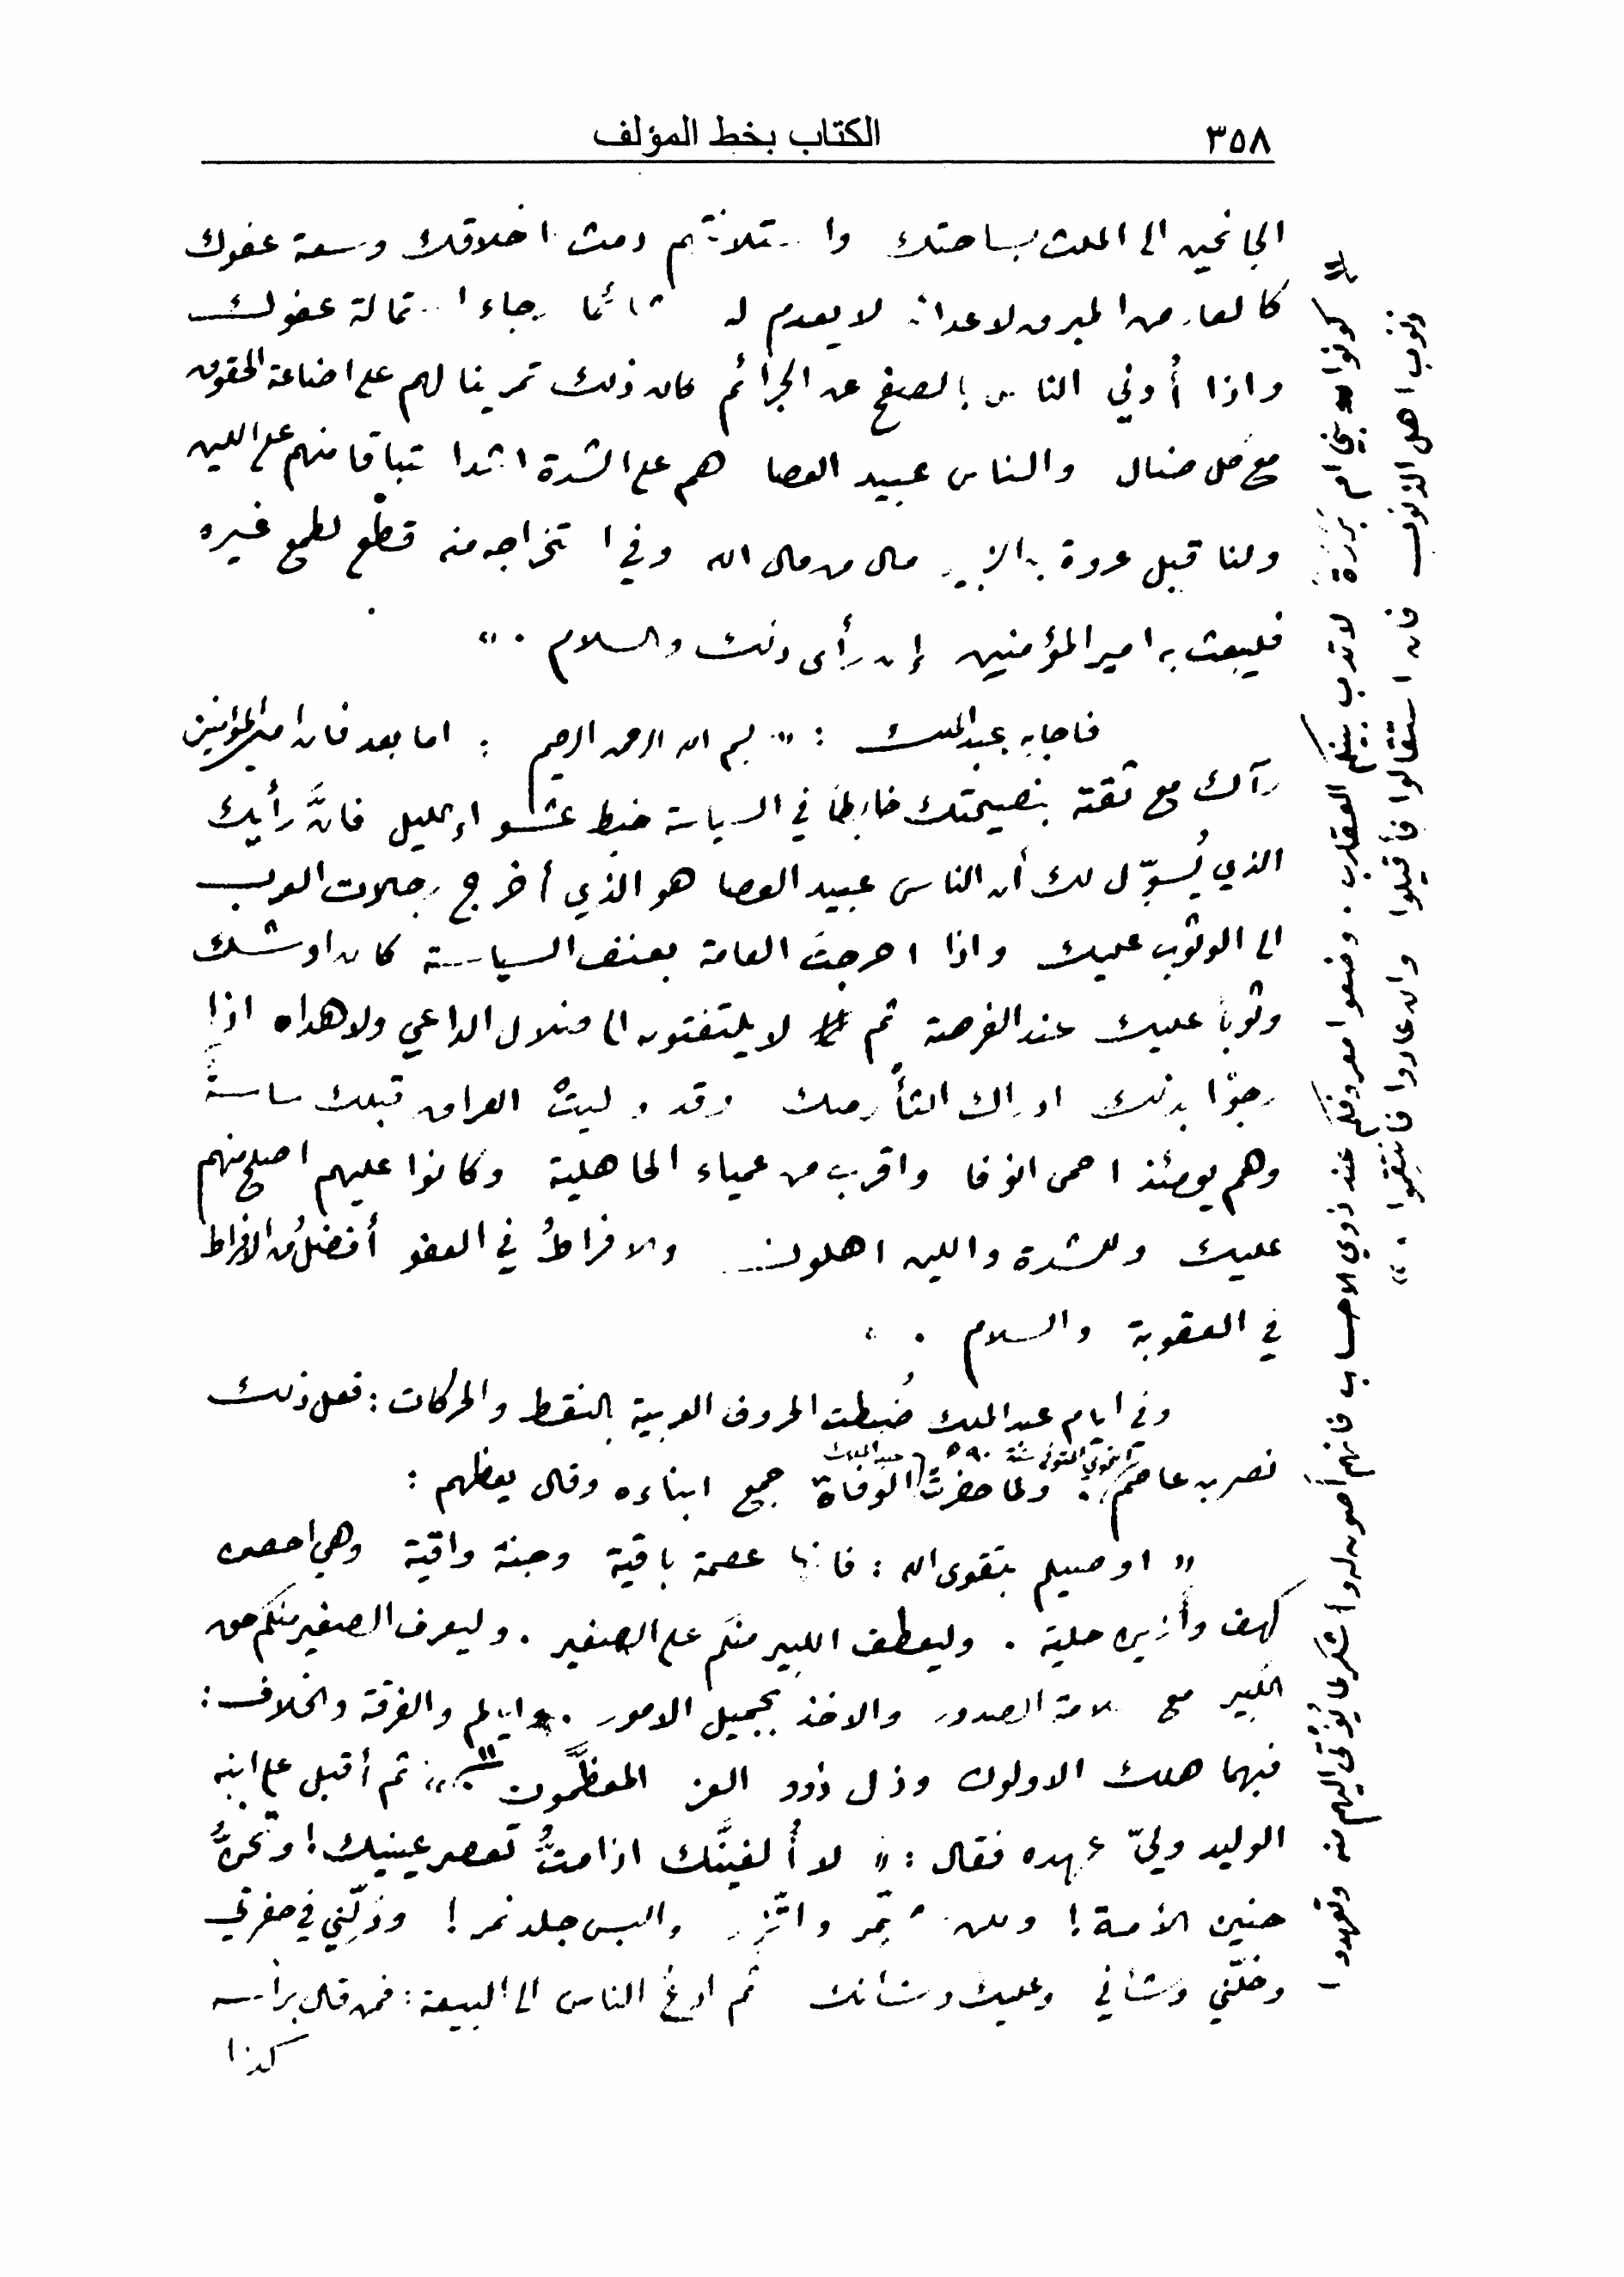 ٣٥٨ الكتاب بخط المؤلف
الجانحين الى المكث بساحتك واستلانتهم دمث اخلاقك وسعة عفوك
كالعارض المبرق لاعدائه لا يعدم له شائما رجاء استمالة عفولك
واذا أُدني الناس بالصفح عن الجرائم كان ذلك تمرينا لهم على اضاعة الحقوق
مع كل ضال والناس عبيد العصا هم على الشدة اشد استباقا منهم على اللين
ولنا قبل عروة بن الزبير مال من مال الله وفي استخراجه منه قطْع لطمع غيره
فليبعث به امير المؤمنين إن رأى ذلك والسلام . »
فاجابه عبد الملك : « بسم الله الرحمن الرحيم : اما بعد فان امير المؤمنين
رآك مع ثقته بنصيحتك خابطاً في السياسة خبط عشواء الليل فانَّ رأيك
الذي يُسوّل لك أن الناس عبيد العصا هو الذي أخرج رجالات العرب
الى الوثوب عليك واذا احرجتَ العامة بعنف السياسة كان اوشك
وثوباً عليك عند الفرصة ثم لا يلتفتون الى ضلال الداعي ولا هداه اذا
رجوْا بذلك ادراك الثأر منك وقد وليتْ العراق قبلك ساسةٌ
وهم يومئذ احمى انوفا واقرب من عمياء الجاهلية وكانوا عليهم اصلح منهم
عليك وللشدة واللين اهلون والافراطُ في العفو أفضلُ من الافراط
في العقوبة والسلام . »
وفي ايام عبد الملك ضُبطت الحروف العربية بالنقط والحركات : فعل ذلك
نصر بن عاصم النحوي المتوفى سنة ٩٠ ه . ولما حضرتْ عبد الملك الوفاة جمع ابناءه وقال يعظهم :
« اوصيكم بتقوى الله : فانها عصمة باقية وجنة واقية وهي احصن
كهف وأزين حلية . وليعطف الكبير منكم على الصغير . وليعرف الصغير منكم حق
الكبير مع سلامة الصدور والاخذ بجميل الامور . واياكم والفرقة والخلاف :
فبهما هلك الاولون وذل ذوو العز المعظَّمون » ثم أقبل على ابنه
الوليد وليّ عهده فقال : « لا أُلفينَّك اذا متُّ تعصر عينيك ! وتحنُّ
حنين الأمة ! ولكن شمّر واتّزر والبس جلد نمر ! ودلّني في حفرتي
وخلّني وشأني وعليك وشأنك ثم ادعُ الناس الى البيعة : فمن قال برأسه
كذا
كونوا بني ام بَرَرَة لا تدب بينكم العقارب . وضعوا معروفكم عند ذوي الاحساب فانهم أصون له واشكر لما يُؤتى اليهم منه وتعهدوا
ذنوب اهل الذنوب فان استقالوا فأقيلوا وان عادوا فانتقِموا . »